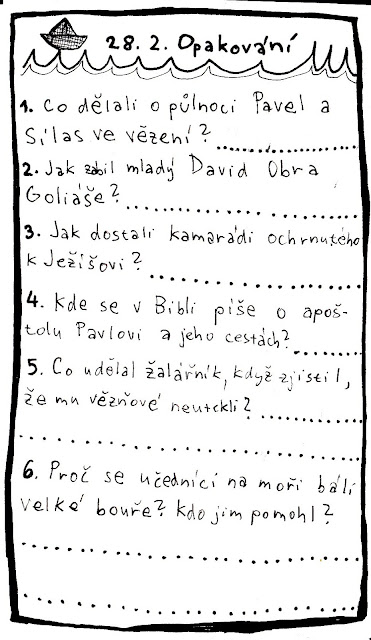 28. 2. Opakování
1. Co dělali o půlnoci Pavel a
Silas ve vězení?..................
2. Jak zabil mladý David Obra
Goliáše?..........................
3. Jak dostali kamarádi ochrnutého
k Ježíšovi?.......................
4. Kde se v Bibli píše o apoš-
tolu Pavlovi a jeho cestách?..........
5. Co udělal žalářník, když zjistil,
že mu vězňové neutekli?..............
..................................
6. Proč se učedníci na moři báli
velké bouře? Kdo jim pomohl?
..................................
..................................